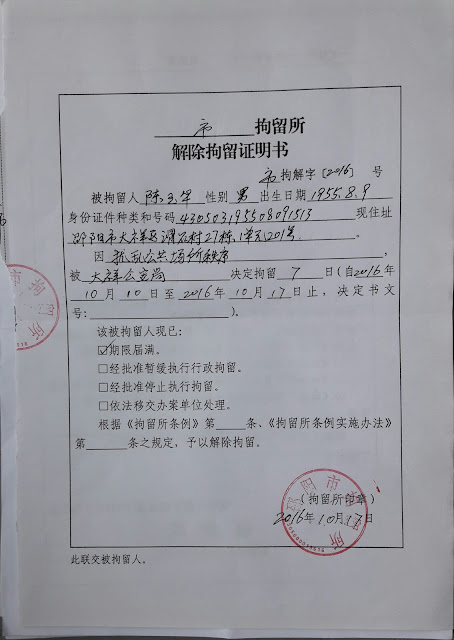 市 拘留所
解除拘留证明书
市 拘解字〔2016〕 号
被拘留人 陈玉华 性别 男 出生日期 1955.8.9
身份证件种类和号码 430503195508091513 现住址
邵阳市大祥区 村27栋1单元201号
因 扰乱公共场所秩序 ,
被 大祥公安局 决定拘留 7 日(自2016年
10月10日至2016年10月17日止,决定书文
号: )。
该被拘留人现已:
☑期限届满。
□经批准暂缓执行行政拘留。
□经批准停止执行拘留。
□依法移交办案单位处理。
根据《拘留所条例》第 条、《拘留所条例实施办法》
第 条之规定,予以解除拘留。
(拘留所印章)
2016年10月17日
邵阳市拘留所
此联交被拘留人。
市拘留所